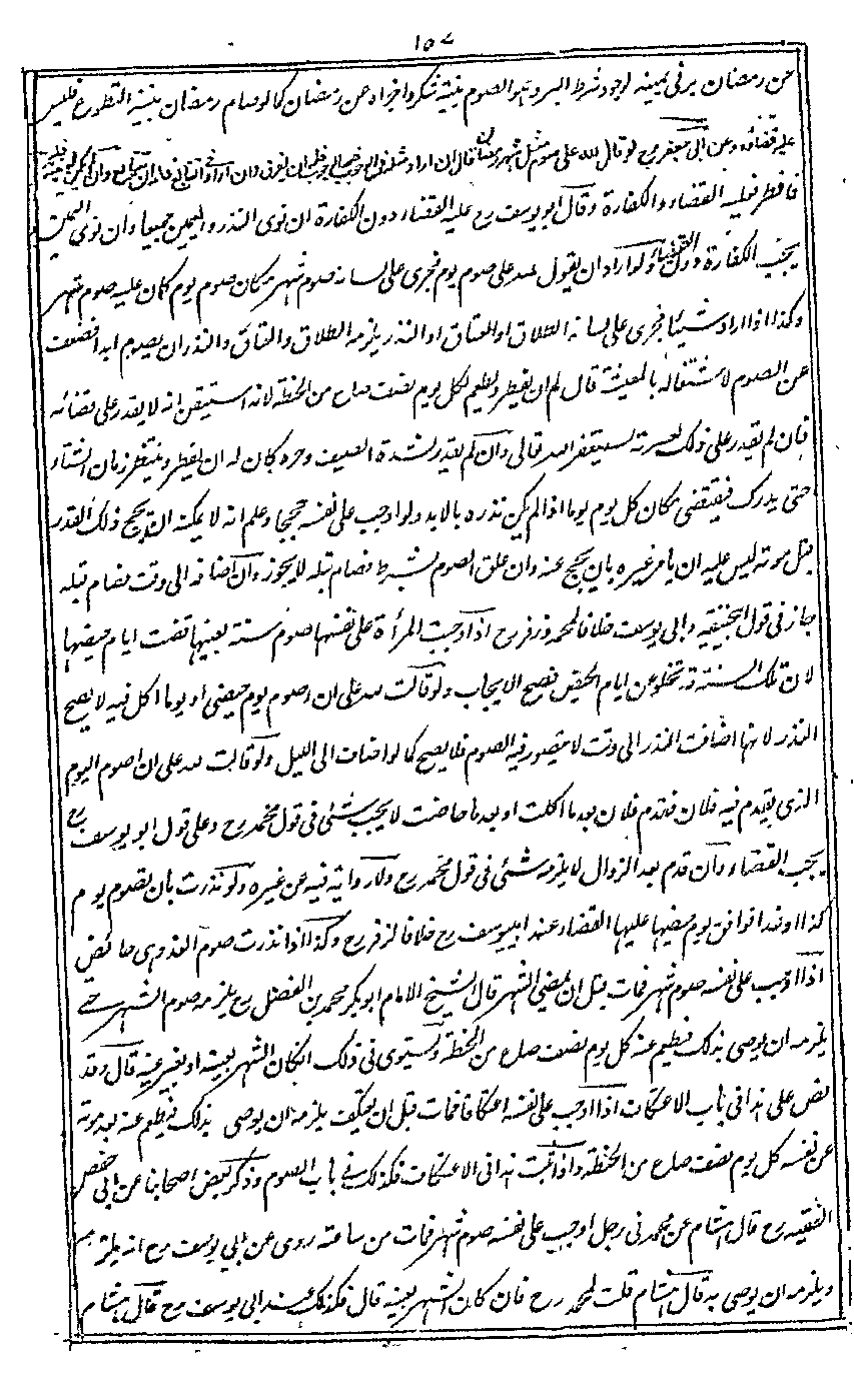 ١٥٧
عن رمضان برفى يمينه لوجود شرط البر وهو الصوم بنية شكر واجزاه عن رمضان كما لو صام رمضان بنية التطوع فليس
عليه قضاؤه وعن ابى جعفر رح لو قال لله على صوم مثل شهر رمضان قال ان اراد مثله فى الوجوب فله ان يفرق وان اراد فى التتابع فعليه ان يتابع وان لم يكن له نية فله
فافطر فعليه القضاء والكفارة وقال ابو يوسف رح عليه القضاء دون الكفارة ان نوى النذر واليمين جميعا وان نوى اليمين
يجب الكفارة دون القضاء ولو اراد ان يقول لله على صوم يوم فجرى على لسانه صوم شهر مكان صوم يوم كان عليه صوم شهر
وكذا اذا اراد شيئا فجرى على لسانه الطلاق او العتاق او النذر يلزمه الطلاق والعتاق والنذر ان يصوم ابدا فضعف
عن الصوم لاشتغاله بالمعيشة قال لهم ان يفطر ويطعم لكل يوم نصف صاع من الحنطة لانه استيقن انه لا يقدر على قضائه
فان لم يقدر على ذلك لعسرته يستغفر الله تعالى وان لم يقدر لشدة الصيف وحره كان له ان يفطر وينتظر زمان الشتاء
حتى يدرك فيقضى مكان كل يوم يوما اذا لم يكن نذره بالابد ولو اوجب على نفسه حججا وعلم انه لا يمكنه ان يحج ذلك القدر
قبل موته ليس عليه ان يامر غيره بان يحج عنه وان علق الصوم بشرط فصام قبله لا يجوز وان اضافه الى وقت فصام قبله
جاز فى قول ابيحنيفه وابى يوسف خلافا لمحمد وزفر رح اذا اوجبت المرأة على نفسها صوم سنة بعينها قضت ايام حيضها
لان تلك السنة قد تخلو عن ايام الحيض فصح الايجاب ولو قالت لله على ان اصوم يوم حيضى او يوما اكل فيه لا يصح
النذر لانها اضافت النذر الى وقت لا متصور فيه الصوم فلا يصح كما لو اضاف الى الليل ولو قالت لله على ان اصوم اليوم
الذى يقدم فيه فلان فقدم فلان بعد ما اكلت او بعد ما حاضت لا يجب شئى فى قول محمد رح وعلى قول ابو يوسف رح
يجب القضاء وان قدم بعد الزوال لا يلزمه شئى فى قول محمد رح ولا رواية فيه عن غيره ولو نذرت بان تصوم يوم
كذا او غدا فوافق يوم حيضها عليها القضاء عند ابيوسف رح خلافا لزفر رح وكذا اذا نذرت صوم الغد وهى حائض
اذا اوجب على نفسه صوم شهر فمات قبل ان يمضى الشهر قال الشيخ الامام ابو بكر محمد بن الفضل رح يلزمه صوم الشهر حتى
يلزمه ان يوصى بذلك فيطعم عنه كل يوم نصف صاع من الحنطة ويستوى فى ذلك ان كان الشهر بعينه او بغير عينه قال وقد
نص على هذا فى باب الاعتكاف اذا اوجب على نفسه اعتكافا فمات قبل ان يعتكف يلزمه ان يوصى بذلك فيطعم عنه بعد موته
عن نفسه كل يوم نصف صاع من الحنطة واذا ثبت هذا فى الاعتكاف فكذلك فى باب الصوم وذكر بعض اصحابنا عن ابى حفص
الفقيه رح قال هشام عن محمد فى رجل اوجب على نفسه صوم شهر فمات من ساعته روى عن ابى يوسف رح انه يلزمه
ويلزمه ان يوصى به قال هشام قلت لمحمد رح فان كان الشهر بعينه قال فكذلك عند ابى يوسف رح قال هشام